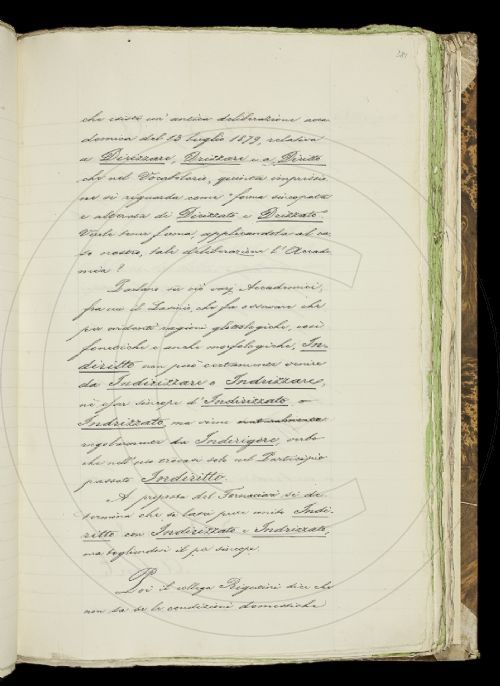 che esiste un' antica deliberazione acca-
demica del 13 luglio 1879, relativa
a Dirizzare, Drizzare e a Diritto
che nel Vocabolario, quinta impressio-
ne si riguarda come "forma sincopata
e alterata di Dirizzato e Drizzato".
Vuole tener ferma, applicandola al ca-
so nostro, tale deliberazione l'Accade-
mia?
Parlano su ciò varj Accademici,
fra cui il Lasinio, che fa osservare che
per evidenti ragioni glottologiche, cioè
fonetiche e anche morfologiche, In-
diritto non può certamente venire
da Indirizzare o Indrizzare,
nè esser sincope d'Indirizzato o
Indrizzato, ma viene naturalmente
regolarmente da Indirigere, verbo
che nell'uso trovasi solo nel Participio
passato Indiritto.
A proposta del Tortoli si de-
termina che si lasci pure unito Indi-
ritto con Indirizzato e Indrizzato,
ma togliendosi il per sincope.
Poi il collega Rigutini dice che
non sa se le condizioni domestiche